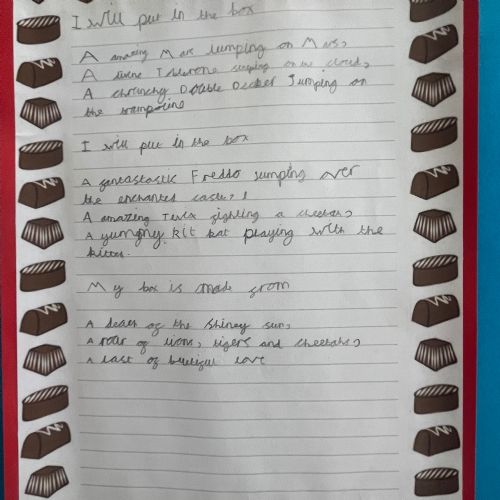 I will put in the box
A amazing Mars Jumping on Mars,
A divine Toblerone sleeping on the cloud,
A chrunchy Double Decker Jumping on
the trampoline
I will put in the box
A fantastastic Freddo Jumping over
the enchanted castle,
A amazing Twix fighting a cheetah,
A yummy kit kat playing with the
kitten.
My box is made from
A beam of the shiney sun,
A roar of lions, tigers and cheetahs,
A last of beutiful love